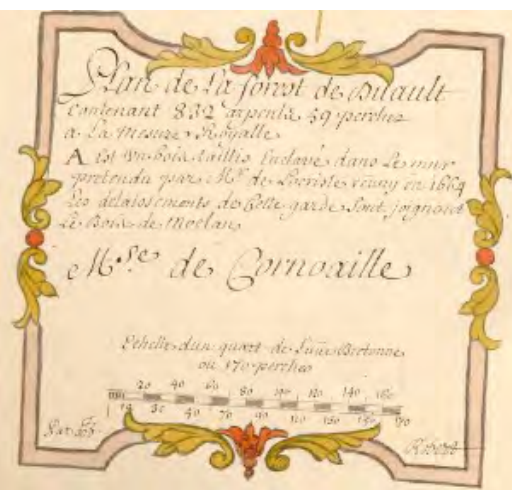 Plan de la forest de Duault
Contenant 832 arpents 59 perches
a La Mesure Royalle
A Est un bois taillis Enclavé dans Le mur
pretendu par Mr de Locriste reuny en 1664
Les delaissements de Cette garde Sont joignant
Le Bois de Moelan
M.se de Cornoaille
Echelle d'un quart de Lieue Bretonne
ou 170 perches
20 40 60 80 100 120 140 160
10 30 50 70 90 110 130 150 170
Robert